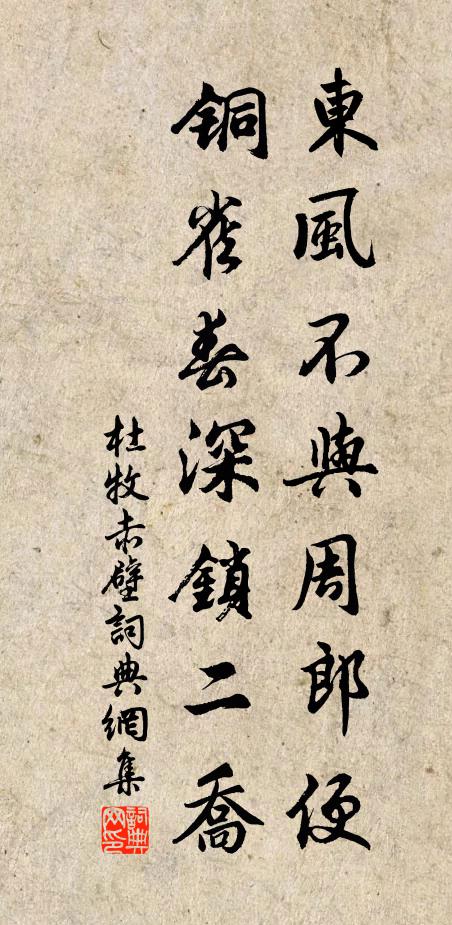 東風不與周郎便
銅雀春深鎖二喬
杜牧赤壁詞典網集
詞典
网印